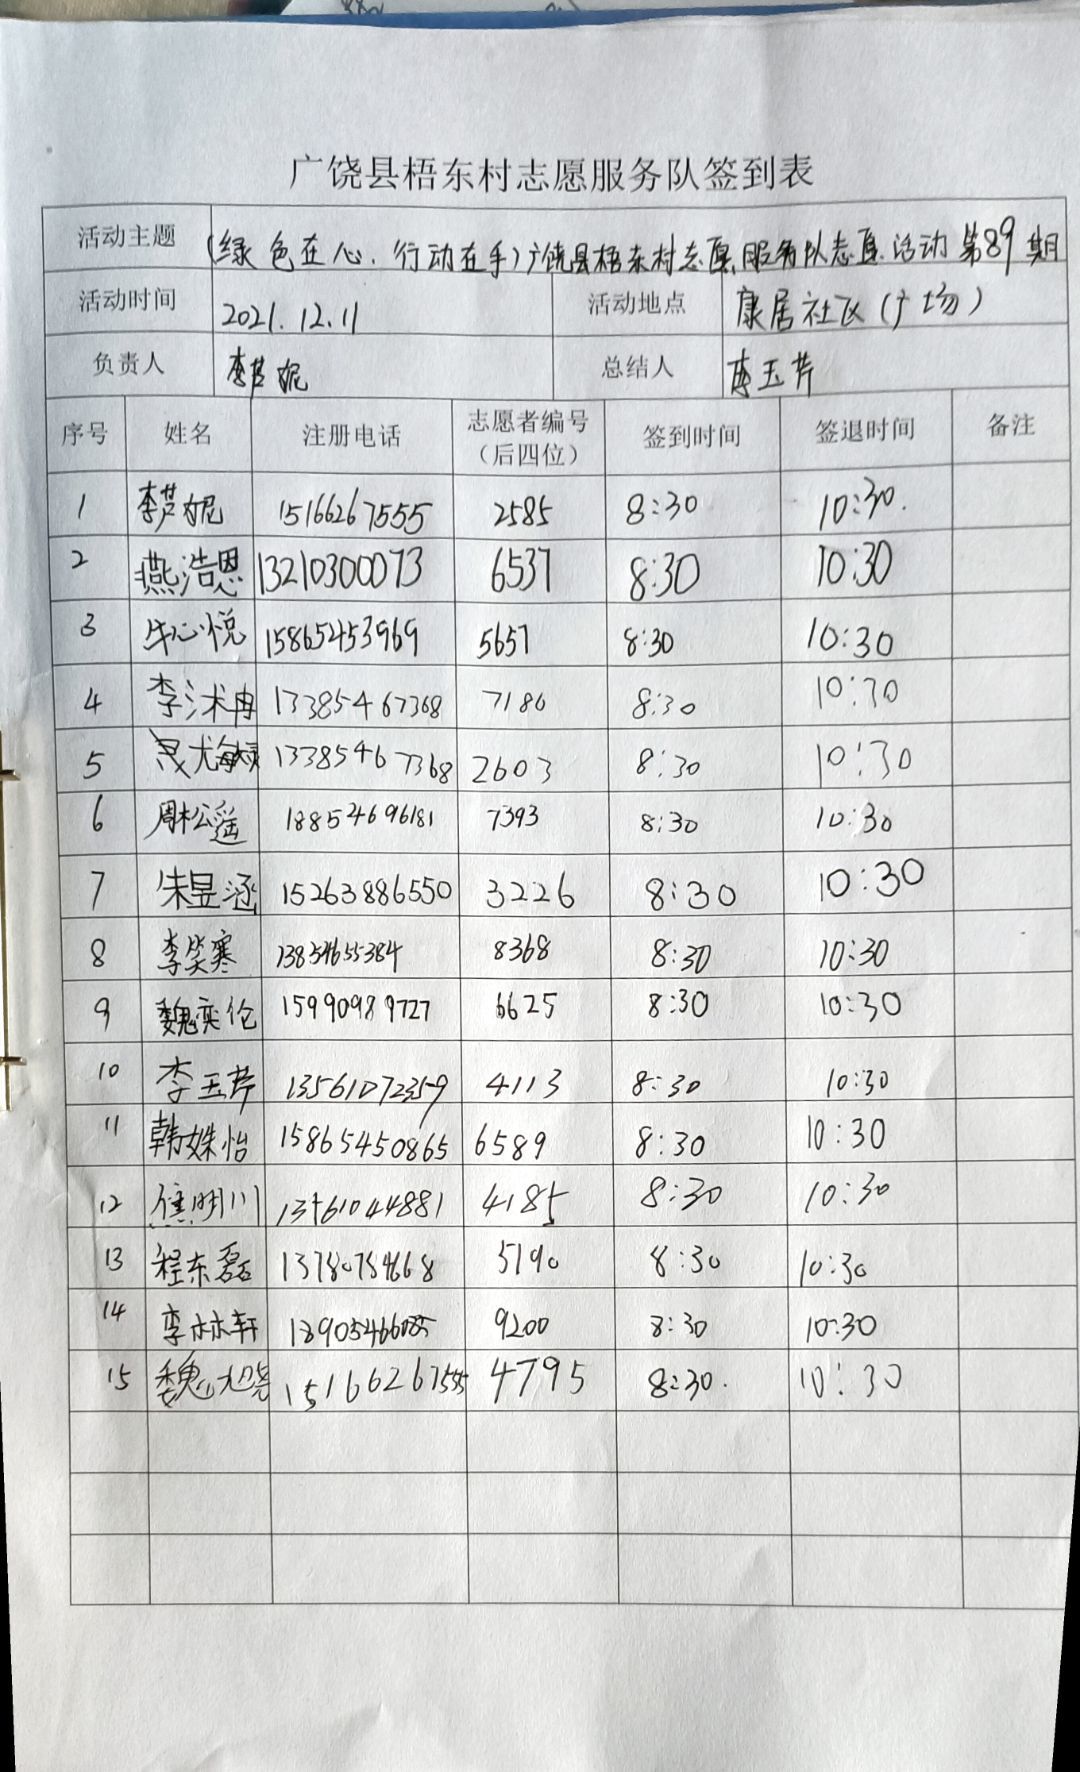 广饶县梧东村志愿服务队签到表
活动主题 (绿色在心.行动在手)广饶县梧东村志愿服务队志愿活动第89期
活动时间 2021.12.11 活动地点 康居社区(广场)
负责人 李芦妮 总结人 李玉芹
序号 姓名 注册电话 志愿者编号(后四位) 签到时间 签退时间 备注
1 李芦妮 15166267555 2585 8:30 10:30.
2 燕浩恩 13210300073 6537 8:30 10:30
3 牛心悦 15865453969 5657 8:30 10:30
4 李沭冉 13385467368 7186 8:30 10:30
5 13385467368 2603 8:30 10:30
6 周松遥 18854696181 7393 8:30 10:30
7 朱昱涵 15263886550 3226 8:30 10:30
8 李笑寒 13854655384 8368 8:30 10:30
9 魏奕伦 15990989727 6625 8:30 10:30
10 李玉芹 13561072359 4113 8:30 10:30
11 韩姝怡 15865450865 6589 8:30 10:30
12 焦明川 13561044881 4185 8:30 10:30
13 程东磊 5190 8:30 10:30
14 李林轩 18905466085 9200 8:30 10:30
15 15166267555 4795 8:30. 10:30